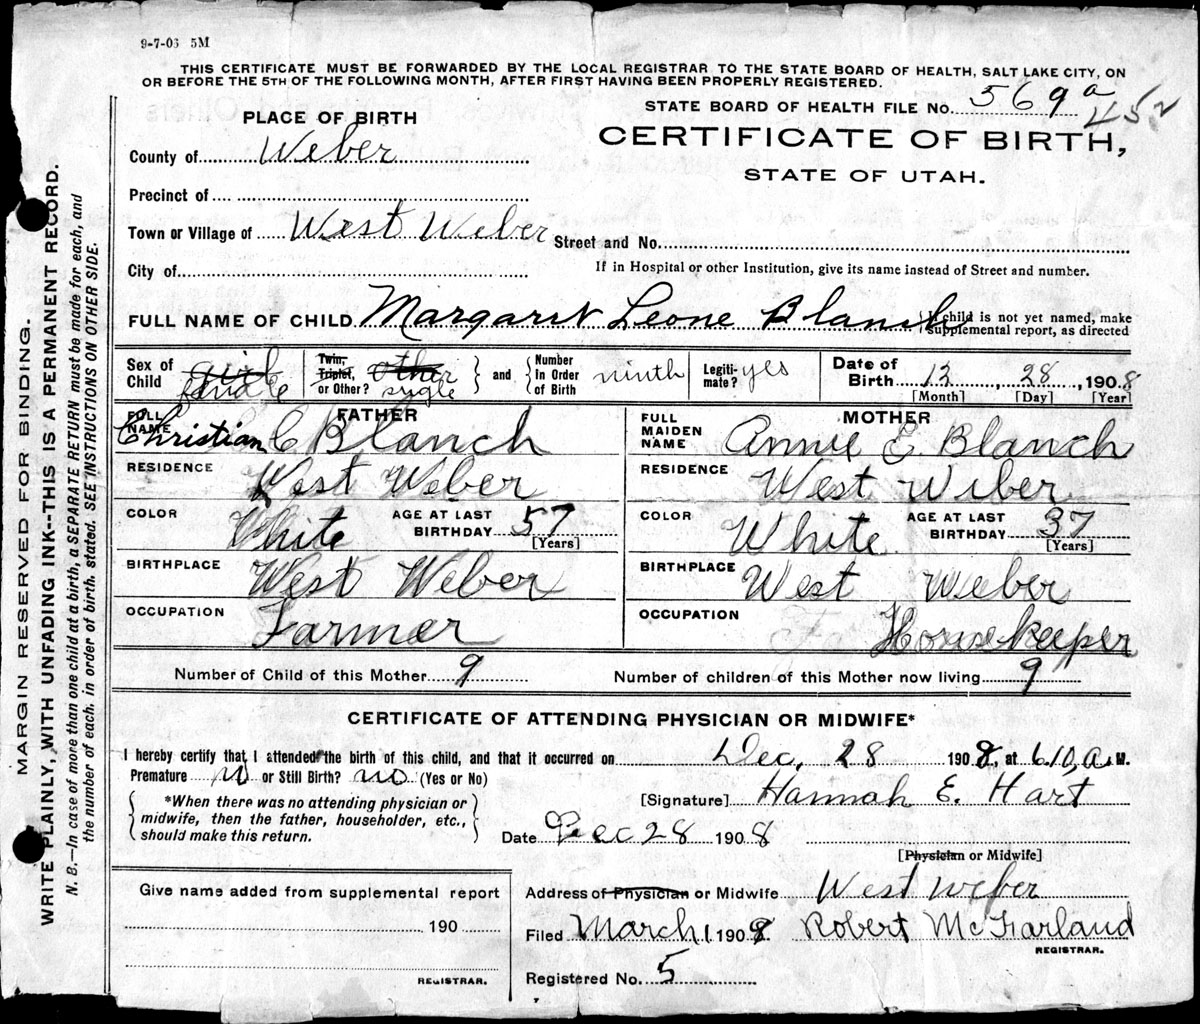 9-7-06 5M
THIS CERTIFICATE MUST BE FORWARDED BY THE LOCAL REGISTRAR TO THE STATE BOARD OF HEALTH, SALT LAKE CITY, ON
OR BEFORE THE 5TH OF THE FOLLOWING MONTH, AFTER FIRST HAVING BEEN PROPERLY REGISTERED.
STATE BOARD OF HEALTH FILE No. 569 a 452
PLACE OF BIRTH
CERTIFICATE OF BIRTH,
STATE OF UTAH.
County of Weber
Precinct of
Town or Village of West Weber
Street and No.
City of
If in Hospital or other Institution, give its name instead of Street and number.
FULL NAME OF CHILD Margaret Leone Blanch
If child is not yet named, make
supplemental report, as directed
Sex of Child girl female
Twin, Triplet, or Other? other single
and
Number In Order of Birth ninth
Legiti-mate? yes
Date of Birth 12, 28, 1908
[Month] [Day] [Year]
FATHER
FULL NAME Christian C Blanch
RESIDENCE West Weber
COLOR White
AGE AT LAST BIRTHDAY 57 [Years]
BIRTHPLACE West Weber
OCCUPATION Farmer
MOTHER
FULL MAIDEN NAME Annie E Blanch
RESIDENCE West Weber
COLOR White
AGE AT LAST BIRTHDAY 37 [Years]
BIRTHPLACE West Weber
OCCUPATION Housekeeper
Number of Child of this Mother 9
Number of children of this Mother now living 9
CERTIFICATE OF ATTENDING PHYSICIAN OR MIDWIFE*
I hereby certify that I attended the birth of this child, and that it occurred on Dec, 28 1908, at 6 10, A M.
Premature no or Still Birth? no (Yes or No)
*When there was no attending physician or
midwife, then the father, householder, etc.,
should make this return.
[Signature] Hannah E. Hart
Date Dec 28 1908
[Physician or Midwife]
Give name added from supplemental report
190
REGISTRAR.
Address of Physician or Midwife West Weber
Filed March 1, 190 Robert McFarland
REGISTRAR.
Registered No. 5
MARGIN RESERVED FOR BINDING.
WRITE PLAINLY, WITH UNFADING INK--THIS IS A PERMANENT RECORD.
N. B.—In case of more than one child at a birth, a SEPARATE RETURN must be made for each, and
the number of each. in order of birth. stated. SEE INSTRUCTIONS ON OTHER SIDE.